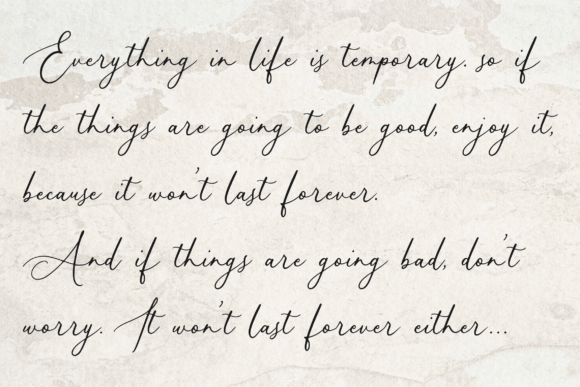 Everything in life is temporary. so if
the things are going to be good, enjoy it,
because it won't last forever.
And if things are going bad, don't
worry. It won't last forever either...